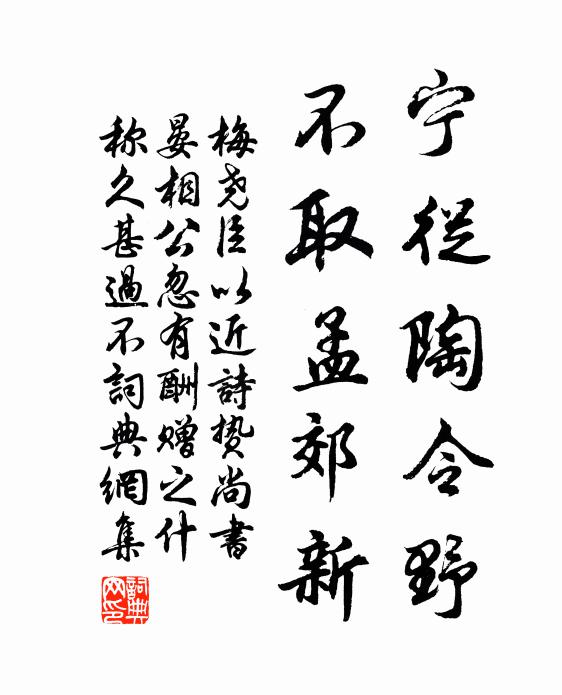 宁從陶令野
不取孟郊新
梅尧臣以近詩贽尚書
晏相公忽有酬赠之什
称久甚過不詞典網集
詞典網印